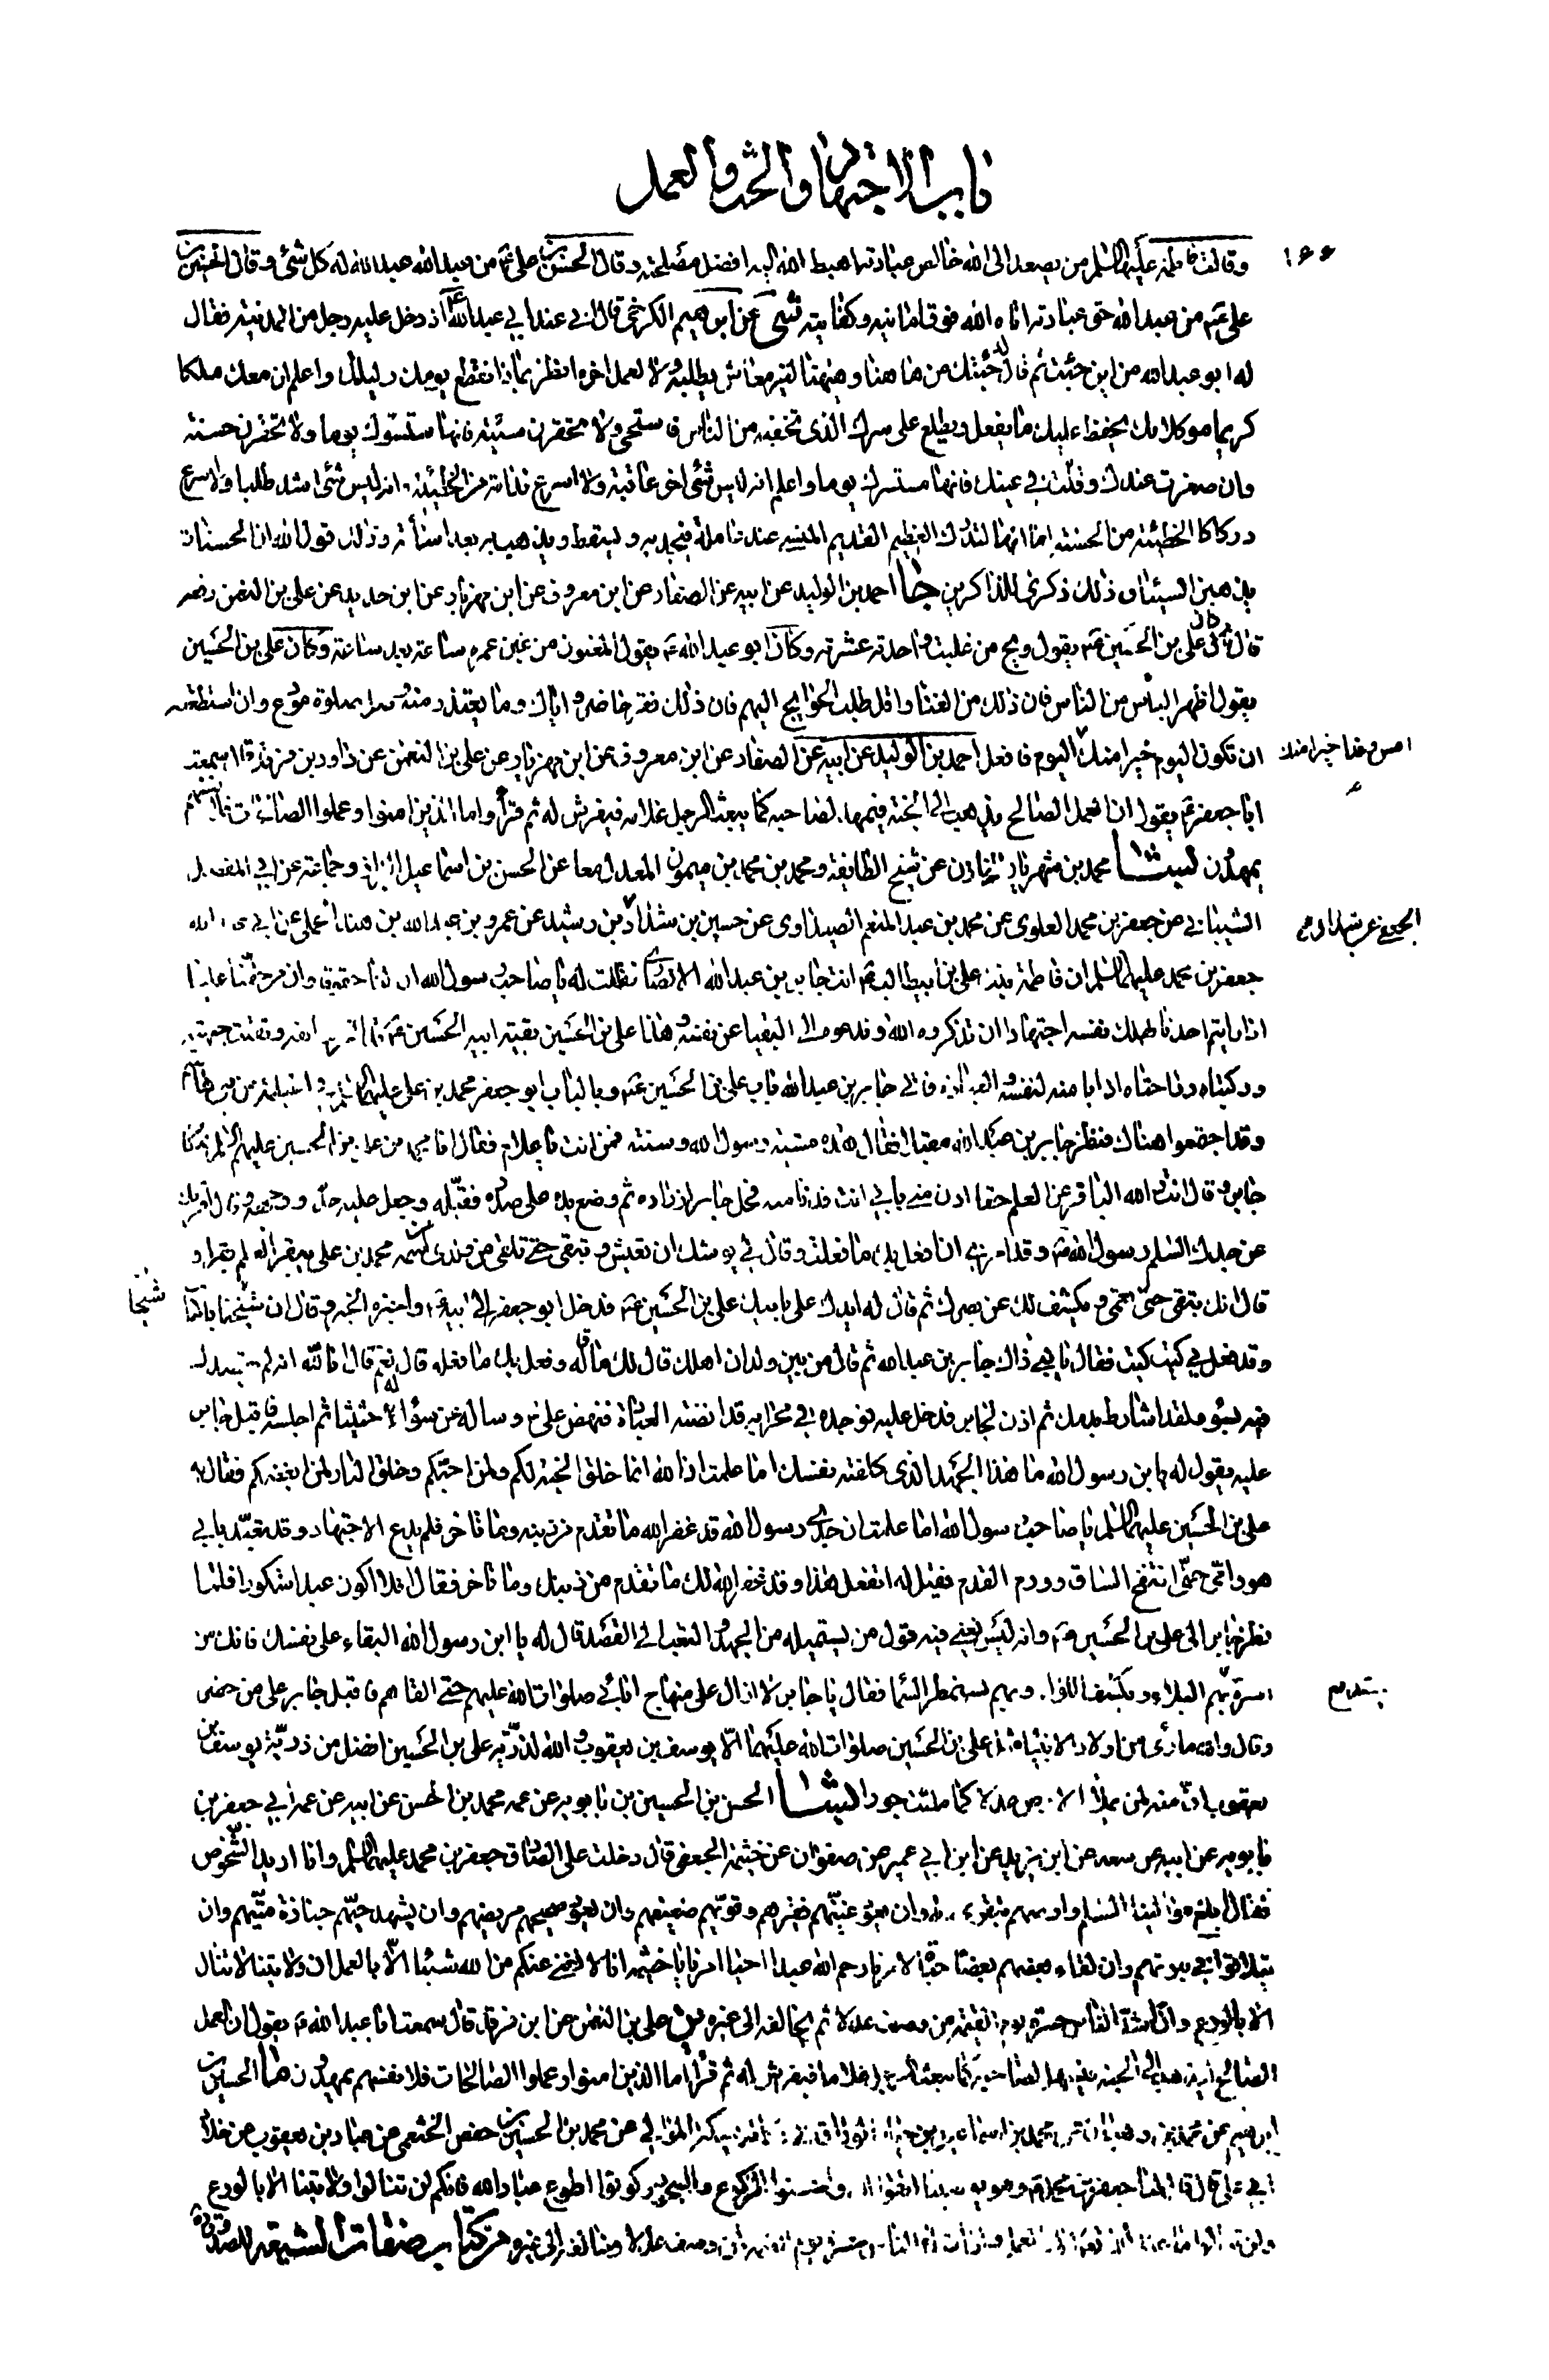 باب الاجتهاد والحث والعمل
١٦٦
وقالت فاطمة عليها السلم من يصعد الى الله خالص عبادته اهبط الله اليه افضل مصلحته وقال الحسن بن علي ع من عبد الله عبد الله له كل شئ وقال الحسين بن
علي ع من عبد الله حق عبادته اتاه الله فوق امانيه وكفايته عن ابرهيم الكرخي قال اني عند ابي عبد الله ع اذ دخل عليه رجل من المدينة فقال
له ابو عبد الله من اين جئت ثم قال له جئتك من هاهنا وهيهنا لغير معاش يطلبه ولا لعمل اخرة انظر بماذا تقطع يومك وليلتك واعلم ان معك ملكا
كريما موكلا بك يحفظ عليك ما يفعل ويطلع على سرك الذى تخفيه من الناس فاستحى ولا تحقرن سيئة فانها ستسوئك يوما ولا تحقرن حسنة
وان صغرت عندك وقلت في عينك فانها ستسرك يوما واعلم انه ليس شئ اضر عاقبة ولا اسرع ندامة من الخطيئة انه ليس شئ اشد طلبا ولا اسرع
دركا للخطيئة من الحسنة اما انها لتدرك العظيم القديم المنسي عند عامله فيجد به ويسقط ويذهب به بعد اساءته وذلك قول الله ان الحسنات
يذهبن السيئات ذلك ذكرى للذاكرين جا احمد بن الوليد عن ابيه عن الصفار عن ابن معروف عن ابن مهزيار عن ابن حديد عن علي بن النعمن رفعه
قال كان علي بن الحسين ع يقول ويح من غلبت واحدته عشرته وكان ابو عبد الله ع يقول المغبون من غبن عمره ساعة بعد ساعة وكان علي بن الحسين
يقول اظهر الياس من الناس فان ذلك من الغنا واقل طلب الحوايج اليهم فان ذلك فقر حاضر واياك وما يعتذر منه وصل صلوة مودع وان استطعت
ان تكون اليوم خيرا منك اليوم فافعل احمد بن الوليد عن ابيه عن الصفار عن ابن معروف عن ابن مهزيار عن علي بن النعمن عن داود بن فرقد قال سمعت
امس وغدا خيرا منك
ابا جعفر ع يقول ان العمل الصالح يذهب الى الجنة فيمهد لصاحبه كما يبعث الرجل غلامه فيفرش له ثم قرأ واما الذين امنوا وعملوا الصالحات فلانفسهم
يمهدون محمد بن شهريار الخازن عن شيخ الطايفة ومحمد بن محمد بن ميمون المعدل معا عن الحسن بن اسماعيل البزاز وجماعة عن ابي المفضل
الشيباني عن جعفر بن محمد العلوى عن محمد بن عبد المنعم الصيداوى عن حسين بن شداد بن رشيد عن عمرو بن عبد الله بن هند الجملي عن ابي عبد الله
الجعفي عن شداد بن
جعفر بن محمد عليهما السلم ان فاطمة بنت علي بن ابيطالب ع اتت جابر بن عبد الله الانصاري فقالت له يا صاحب رسول الله ان لنا حقوقا وان من حقنا عليكم
اذا رايتم احدنا يهلك نفسه اجتهادا ان تذكروه الله وتدعوه الى البقيا عن نفسه وهذا علي بن الحسين بقية ابيه الحسين ع قد انخرم انفه وثفنت جبهته
وركبتاه وراحتاه ادابا منه لنفسه في العبادة فاتى جابر بن عبد الله باب علي بن الحسين ع وبالباب ابو جعفر محمد بن علي عليهما السلم في اغيلمة من بني هاشم
وقد اجتمعوا هناك فنظر جابر بن عبد الله مقبلا فقال هذه مشية رسول الله وسنته فمن انت يا غلام فقال انا محمد بن علي بن الحسين عليهم السلم فبكى
جابر وقال انت والله الباقر عن العلم حقا ادن مني بابي انت فدنا منه فحل جابر ازاره ثم وضع يده على صدره فقبله وجعل عليه خده ووجهه وقال اقرئك
عن جدك السلم رسول الله ص وقد امرني ان افعل بك ما فعلت وقال لي يوشك ان تعيش وتبقى حتى تلقى من ولدى من اسمه محمد بن علي يبقر العلم بقرا و
قال انك تبقى حتى تعمى ثم يكشف لك عن بصرك ثم قال له ايذن لي على ابيك علي بن الحسين ع فدخل ابو جعفر الى ابيه ع واخبره الخبر وقال ان شيخنا بالباب
شيخا
وقد فعل بي كيت كيت فقال يا بني ذاك جابر بن عبد الله ثم قال من بين ولدان اهلك قال لك ما قاله وفعل بك ما فعله قال نعم قال انا لله انه لم يقصدك
فيه بسوء ولقد اشاط بدمك ثم اذن لجابر فدخل عليه فوجده في محرابه قد انضته العبادة فنهض علي ع وساله عن سؤاله حفيا ثم اجلسه فاقبل جابر
عليه يقول له يا بن رسول الله ما هذا الجهد الذى كلفته نفسك اما علمت ان الله انما خلق الجنة لكم ولمن احبكم وخلق النار لمن ابغضكم فقال له
علي بن الحسين عليهما السلم يا صاحب رسول الله اما علمت ان جدي رسول الله قد غفر الله ما تقدم من ذنبه وما تاخر فلم يدع الاجتهاد وقد تعبد بابي
هو وامى حتى انتفخ الساق وورم القدم فقيل له اتفعل هذا وقد غفر الله لك ما تقدم من ذنبك وما تاخر فقال افلا اكون عبدا شكورا فلما
نظر جابر الى علي بن الحسين ع وانه ليس يغني فيه قول من يستميله من الجهد والتعب الى القصد قال له يا ابن رسول الله البقاء على نفسك فانك من
اسرة بهم البلاء ويكشف اللاوا وبهم يستمطر السما فقال يا جابر لا ازال على منهاج ابائي صلوات الله عليهم حتى القاهم فاقبل جابر على من حضر
وقال والله ما رئى من اولاد الانبياء مثل علي بن الحسين صلوات الله عليهما الا يوسف بن يعقوب والله لذرية علي بن الحسين افضل من ذرية يوسف بن
يعقوب ان منه لمن يملأ الارض عدلا كما ملئت جورا الحسن بن الحسين بن بابويه عن عمه محمد بن الحسن عن ابيه عن عمه ابي جعفر بن
بابويه عن ابيه عن سعد عن ابن يزيد عن ابن ابي عمير عن صفوان عن خيثمة الجعفي قال دخلت على الصادق جعفر بن محمد عليهما السلم وانا اريد الشخوص
فقال بلغ موالينا السلم واوصهم بتقوى الله وان يعود غنيهم فقيرهم وقويهم ضعيفهم وان يعود صحيحهم مريضهم وان يشهد حيهم جنازة ميتهم وان
يتلاقوا في بيوتهم وان لقاء بعضهم بعضا حياة لامرنا رحم الله عبدا احيا امرنا يا خيثمة انا لا نغني عنكم من الله شيئا الا بالعمل ان ولايتنا لا تنال
الا بالورع وان اشد الناس حسرة يوم القيمة من وصف عدلا ثم يخالفه الى غيره علي بن النعمن عن ابن فرقد قال سمعت ابا عبد الله ع يقول ان العمل
الصالح ليذهب الى الجنة فيمهد لصاحبه كما يبعث الرجل غلاما فيفرش له ثم قرأ اما الذين امنوا وعملوا الصالحات فلانفسهم يمهدون الحسين بن
ابرهيم عن محمد بن وهبان عن محمد بن اسماعيل بن عن محمد بن الحسين بن حفص الخثعمي عن عباد بن يعقوب عن خلاد
ابي علي قال قال لنا جعفر بن محمد ع وهو يوصينا اتقوا الله واحسنوا الركوع والسجود وكونوا اطوع عباد الله فانكم لن تنالوا ولايتنا الا بالورع
ولن تنالوا ما عند الله تعالى الا بالعمل وان اشد الناس حسرة يوم القيمة لمن وصف عدلا وخالفه الى غيره من كتاب صفات الشيعة للصدوق ره